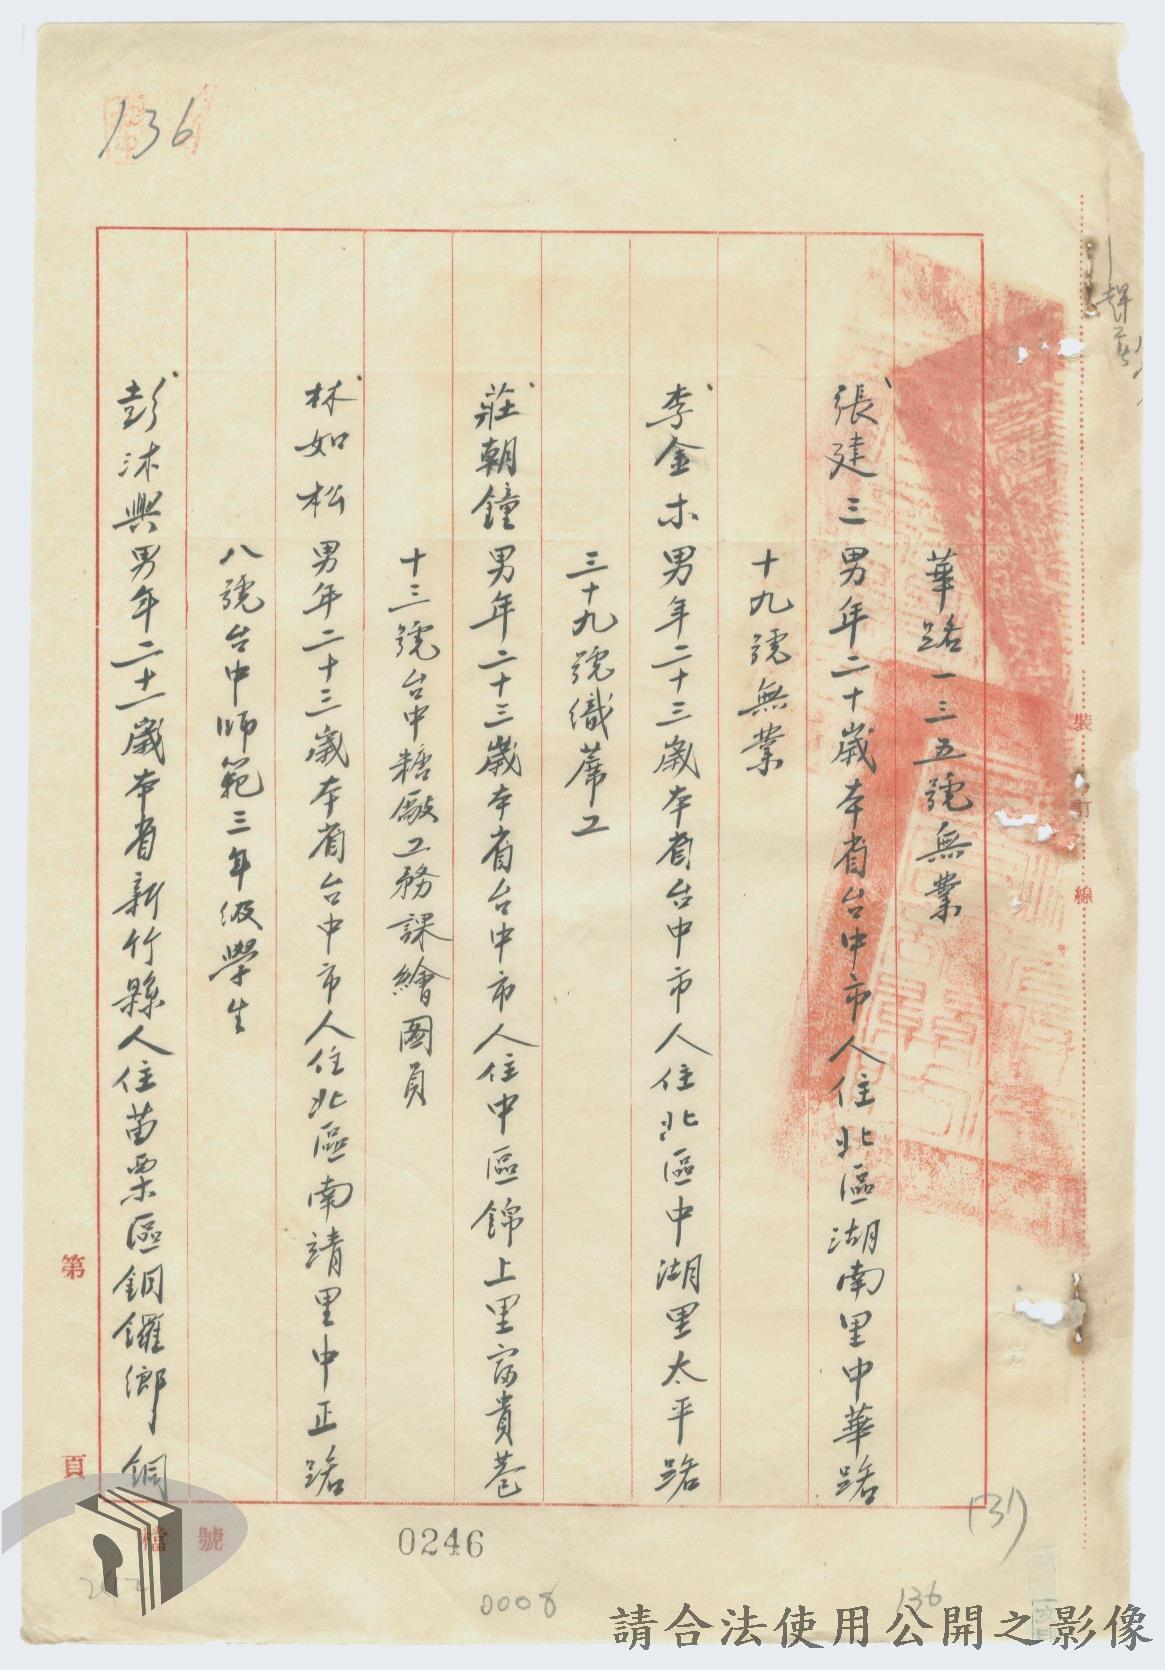 136
華路一三五號無業
張建三男年二十歲本省台中市人住北區湖南里中華路
十九號無業
李金木男年二十三歲本省台中市人住北區中湖里太平路
三十九號織蓆工
莊朝鐘男年二十三歲本省台中市人住中區錦上里富貴巷
十三號台中糖廠工務課繪圖員
林如松男年二十三歲本省台中市人住北區南靖里中正路
八號台中師範三年級學生
彭沐興男年二十一歲本省新竹縣人住苗栗區銅鑼鄉銅
裝訂線
第頁
檔號
0246
0008
136
請合法使用公開之影像